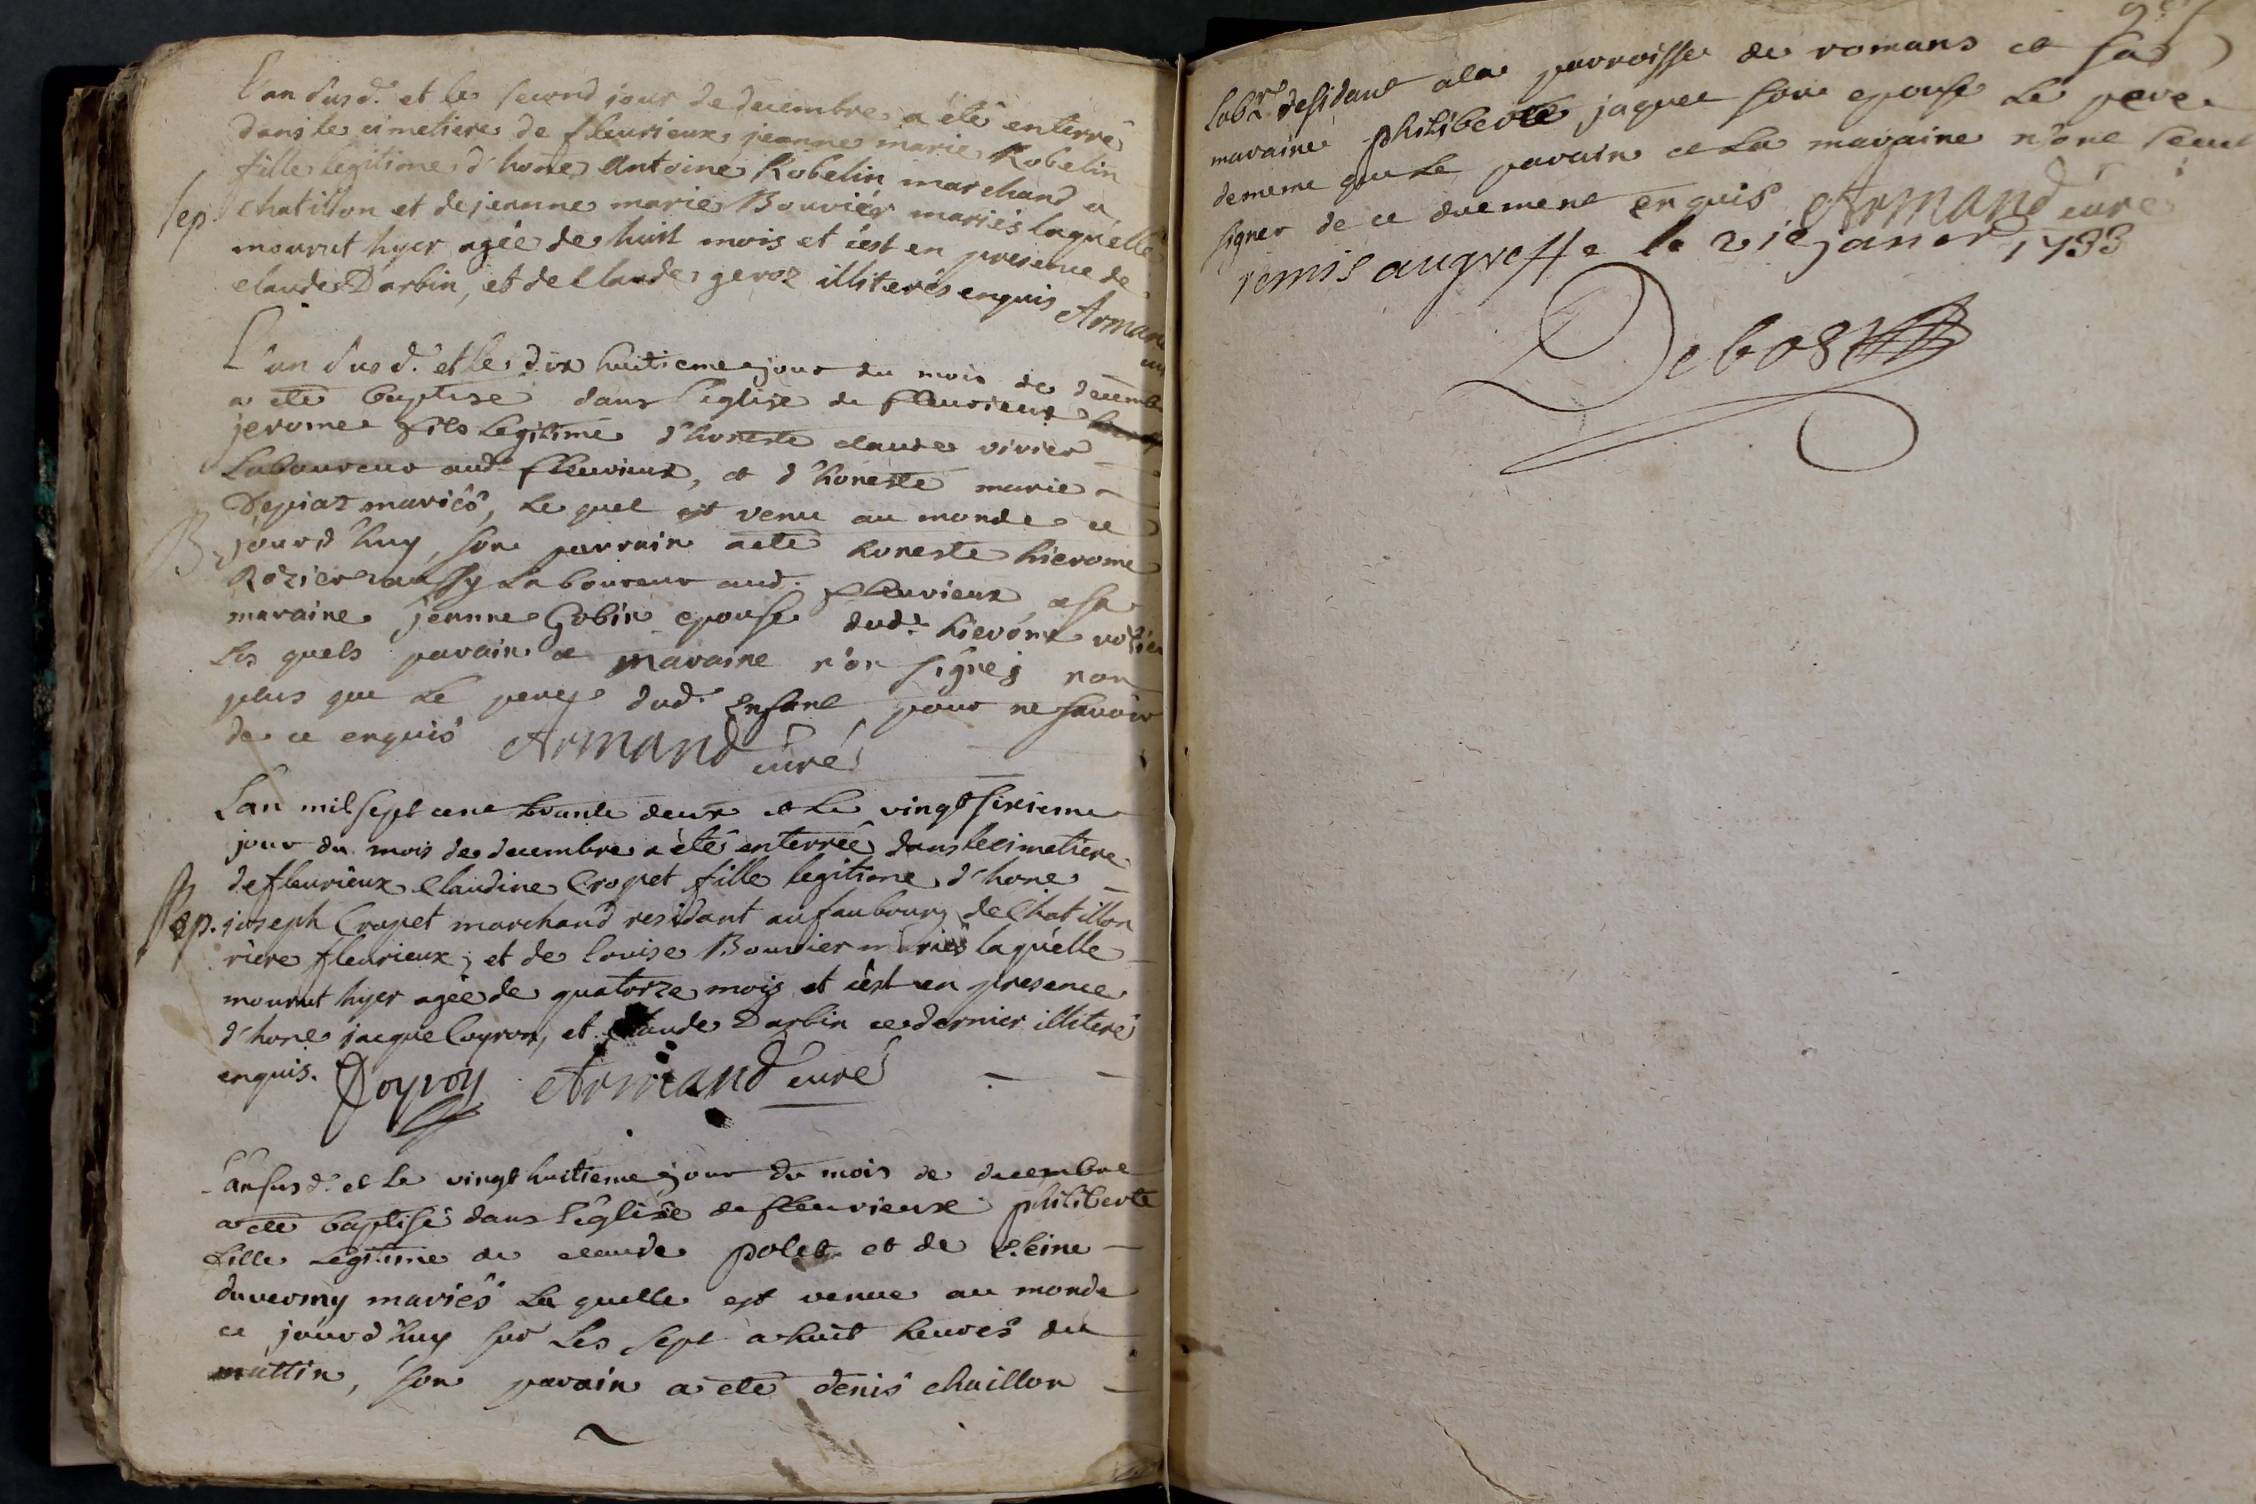 L'an susd. et le second jour de decembre a été enterré
dans le cimetiere de fleurieux jeanne marie Robelin
fille legitime d'hone Antoine Robelin marchand a
Sep. chatillon et de jeanne marie Bouvier mariés laquelle
mourut hyer agée de huit mois et c'est en presence de
claude Darbin, et de Claude geroz illiterés enquis Armand
L'an susd. et le dix huitieme jour du mois de decemb
a été baptisé dans l'eglise de fleurieux
jerome fils legitime d'honeste claude vivier
Laboureur aud. fleurieux, et d'honeste marie
mariés, le quel est venu au monde ce
B. jourd'huy, son parrain a eté honeste hierome
Rozier aussy Laboureur aud. fleurieux et sa
maraine jeanne Gobin epouse dud. hierome rosier
Les quels parain et maraine n'on signes non
plus que Le pere dud. enfant pour ne savoir
de ce enquis Armand curé
L'an mil sept cent trante deux et le vingt sixieme
jour du mois de decembre a été enterrée dans le cimetiere
de fleurieux Claudine Cropet fille legitime d'hone
Sep. joseph Cropet marchand residant au faubourg de Chatillon
riere fleurieux, et de louise Bouvier mariés laquelle
mourut hyer agée de quatorze mois et c'est en presence
d'hone jacque Coyron, et Claude Darbin ce dernier illiteré
enquis. Armand curé
L'an susd. et le vingt huitieme jour du mois de decembre
a eté baptisé dans l'eglise de fleurieux philiberte
fille Legitime de claude polet et de
duverny mariés La quelle est venue au monde
ce jourd'huy sur Les sept a huit heures du
mattin, son parain a eté denis chaillon
Labr. residant a la parroisse de romans et sa
maraine philiberte jaquet son epouse Le pere
de meme que Le parain et La maraine n'one seut
signer de ce duement enquis Armand curé
remis au greffe le 21e janer 1733
Debost